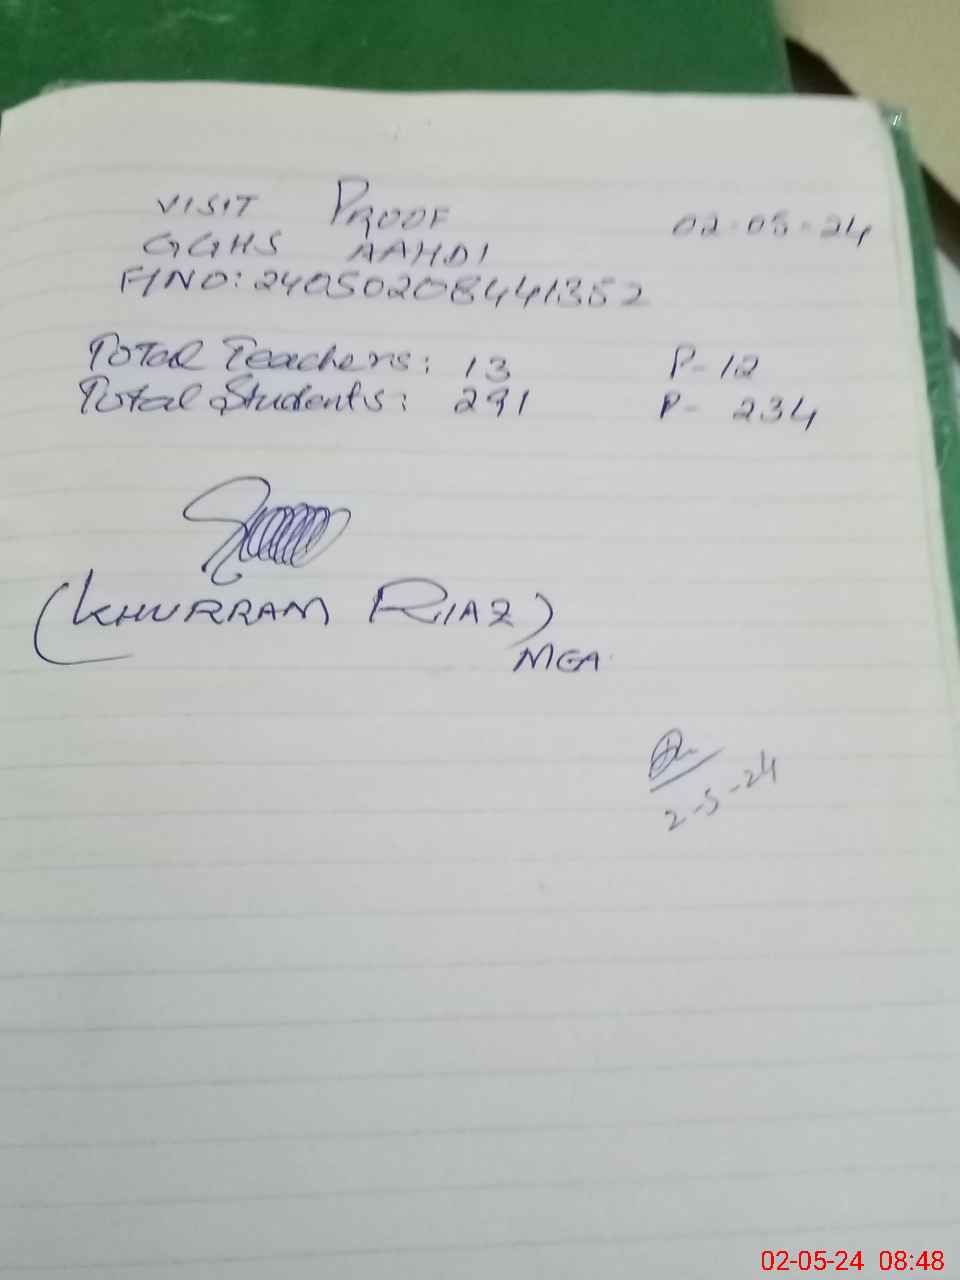 VISIT PROOF 02-05-24
GGHS AAHDI
F/NO: 24050208441352
Total Teachers: 13 P-12
Total Students: 291 P- 234
(KHURRAM RIAZ)
MEA
2-5-24
02-05-24 08:48